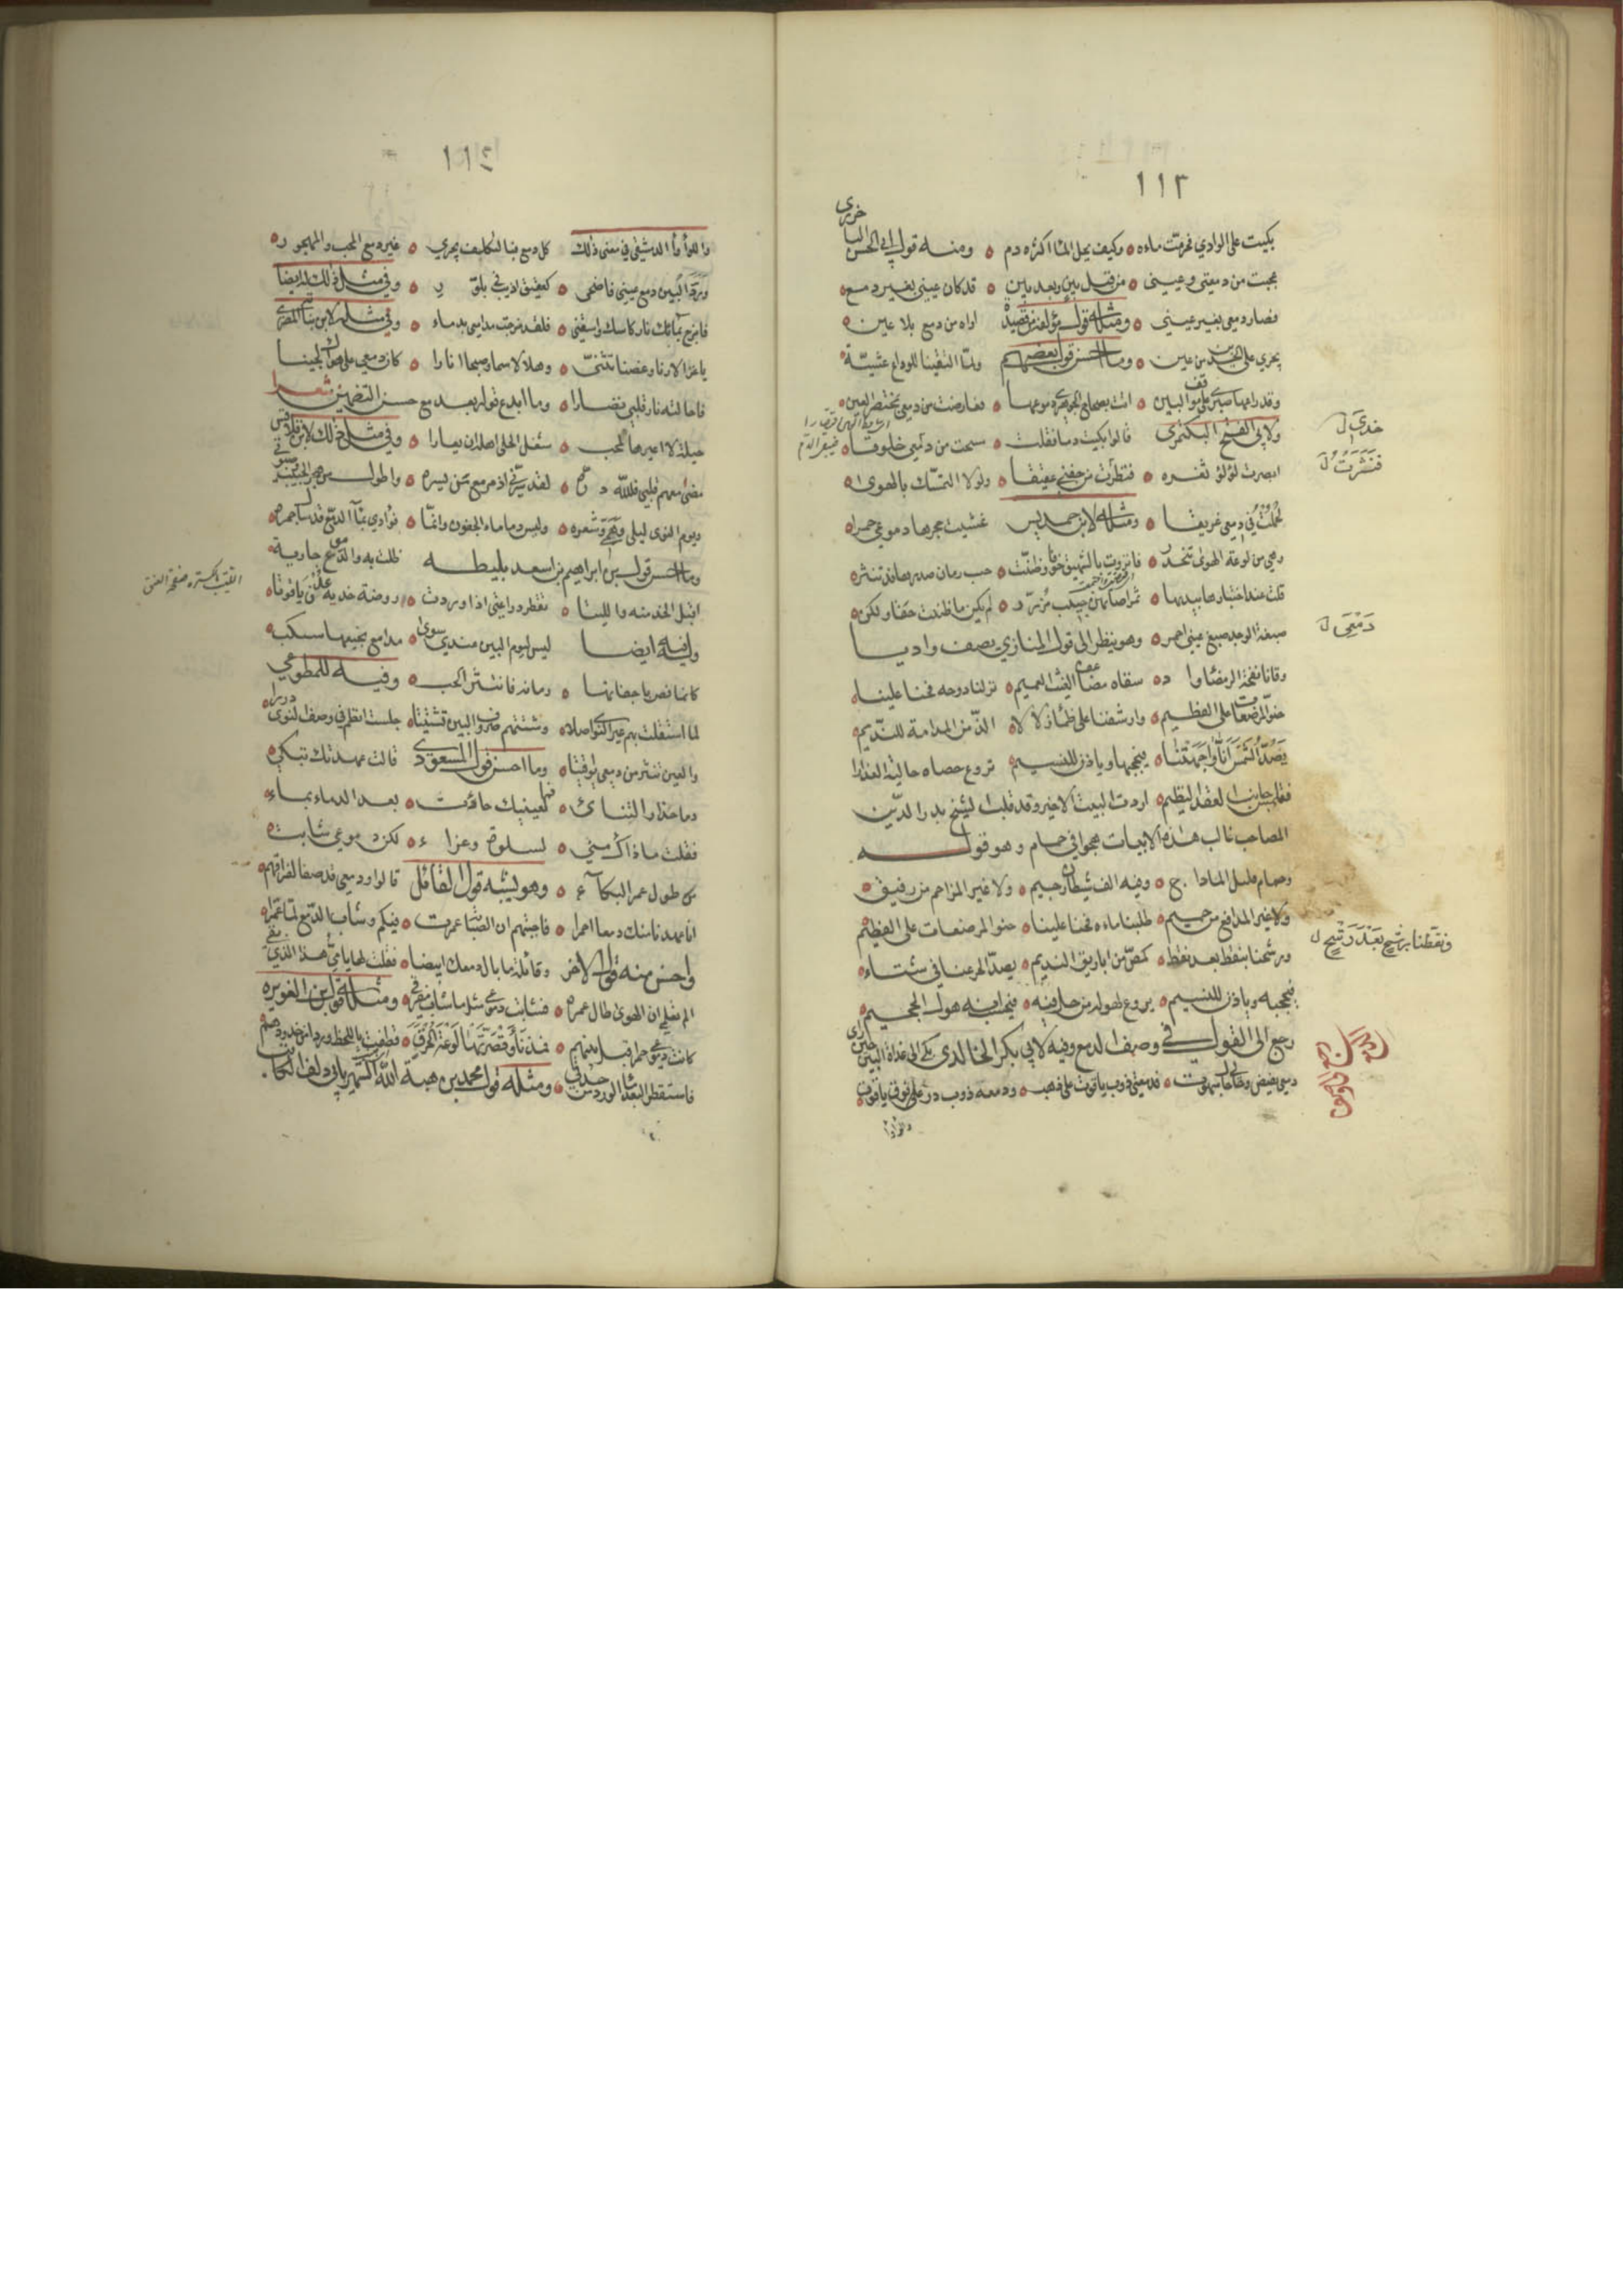 ١١٣
بكيت على الوادي فحرمت ماءه وكيف يحل الما اكثره دم ومنه قول ابي الحسن الباخرزي
عجبت من دمعتي وعيني من قبل بين وبعد بين قد كان عيني بغير دمع
فصار دمعي بغير عيني ومثله قول مؤلفه من قصيدة اواه من دمع بلا عين
يجري على الخدين من عين وما احسن قول بعضهم ولما التقينا للوداع عشية
وقد راعها صبري على موقف البين اتت بصحاح الجوهري دموعها فعارضت من دمعي بمختصر العين
ولابي الفتح البكتمري قالوا بكيت دما فقلت مسحت من دمعي خلوقا
ابصرت لؤلؤ ثغره فنظرت من جفني عقيقا ولولا التمسك بالهوى
لحملت في دمعي غريقا ومثله لابن حمديس غشيت محجرها دموعي حمرا
وهي من لوعة الهوى تتحدر فانزوت بالشهيق خوفا وظنت حب رمان صدرها قد تنثر
قلت عند اختبارها بيديها ثمرا صانهن جيب مزرر لم يكن ما ظننت حقا ولكن
صبغة الوجد صبغ عيني احمر وهو ينظر الى قول المنازي يصف واديا
وقانا لفحة الرمضا واد سقاه مضاعف الغيث العميم نزلنا دوحه فحنا علينا
حنو المرضعات على الفطيم وارشفنا على ظمأ زلالا الذ من المدامة للنديم
يصد الشمس انا واجهتنا فيحجبها وياذن للنسيم تروع حصاه حالية العذارا
فتلمس جانب العقد النظيم اردت البيت الاخير وقد قلب الشيخ بدر الدين
الصاحب غالب هذه الابيات هجوا في حمام وهو قوله
وحمام قليل الما داج وفيه الف شيطان رجيم ولا غير المزاحم من رفيق
ولا غير المدافع من حميم طلبنا ماءه فحنا علينا حنو المرضعات على الفطيم
ورشحنا بنقط بعد نقط كمص من اباريق النديم يصد الحر عنا في شتاء
فيحجبه وياذن للنسيم يروع لهوله من حل فيه
رجع الى القول في وصف الدمع وفيه لابي بكر الخالدي بكى الى غداة البين حين رأى
دمعي يفيض وحالي حال مبهوت فدمعتي ذوب ياقوت على ذهب ودمعه ذوب در فوق ياقوت
وللوأوا
خدي ل
فنثرت ل
دمعي ل
ونقطنا برشح بعد رشح ل
١١٤
وللوأوأ الدمشقي في معنى ذلك كل دمع فبالتكليف يجري غير دمع المحب والمهجور
ورد البين دمع عيني فاضحى كعقيق اذيب في بلور وفي مثل ذلك له ايضا
فامزج بمائك نار كاسك واسقني فلقد مزجت مدامعي بدماء وفي مثله لابن نباتة المصري
ياغزالا رنا وغصنا تثنى وهلالا سما وصبحا انارا كان دمعي على هواك لجينا
فاحالته نار قلبي نضارا وما ابدع قوله بعد مع حسن التضمين شعرا
حيلة لا اعيرها لمحب شغل الحلي اهله ان يعارا وفي مثل ذلك لابن قلاقس
مضى معهم قلبي فلله دره لقد سرني اذ مر مع من يسره
ويوم النوى ليلي وهمي وشعره وليس دما ماء الجفون وانما فؤادي بماء الدمع قد سال جمره
وما احسن قول ابراهيم بن اسعد بليطه ظلت به والدموع جارية
اقبل الخد منه والليتا تقطر دراعتي اذا وردت روضة خديه عدن ياقوتا
وله فيه ايضا ليس ليوم البين عندي سوى مدامع نجيعها سكب
كانما فض باجفانها رمانة فانتثر الحب وفيه للمطوعي
لما استقلت بهم عيس النوى اصلا وشتتهم صروف البين تشتيتا جلست انظم في وصف النوى دررا
والعين تنثر من دمعي يواقيتا وما احسن قول المسعودي قالت عهدتك تبكي
دما حذار التنائي فما لعينيك جادت بعد الدماء بماء
فقلت ماذاك مني لسلوة وعزاء لكن دموعي شابت
من طول عمر البكاء وهو يشبه قول القائل قالوا ودمعي قد صفا لفراقهم
انا عهدنا منك دمعا احمرا فاجبتهم ان الصبا عمرت فيكم وشاب الدمع لما عمرا
واحسن منه قول الاخر وقائلة ما بال دمعك ابيضا فقلت لها يا مي هذا الذي بقي
الم تعلمي ان الهوى طال عمره فشابت دموعي مثل ما شاب مفرقي ومثله قول ابن الغويره
كانت دموعي حمرا قبل بعدهم فمذ نأوا قصرتها لوعة الحرق قطفت باللحظ وردا من خدودهم
فاستقطر البعد ماء الورد من حدقي ومثله قول محمد بن هبة الله الشهير بابي دلف الكاتب